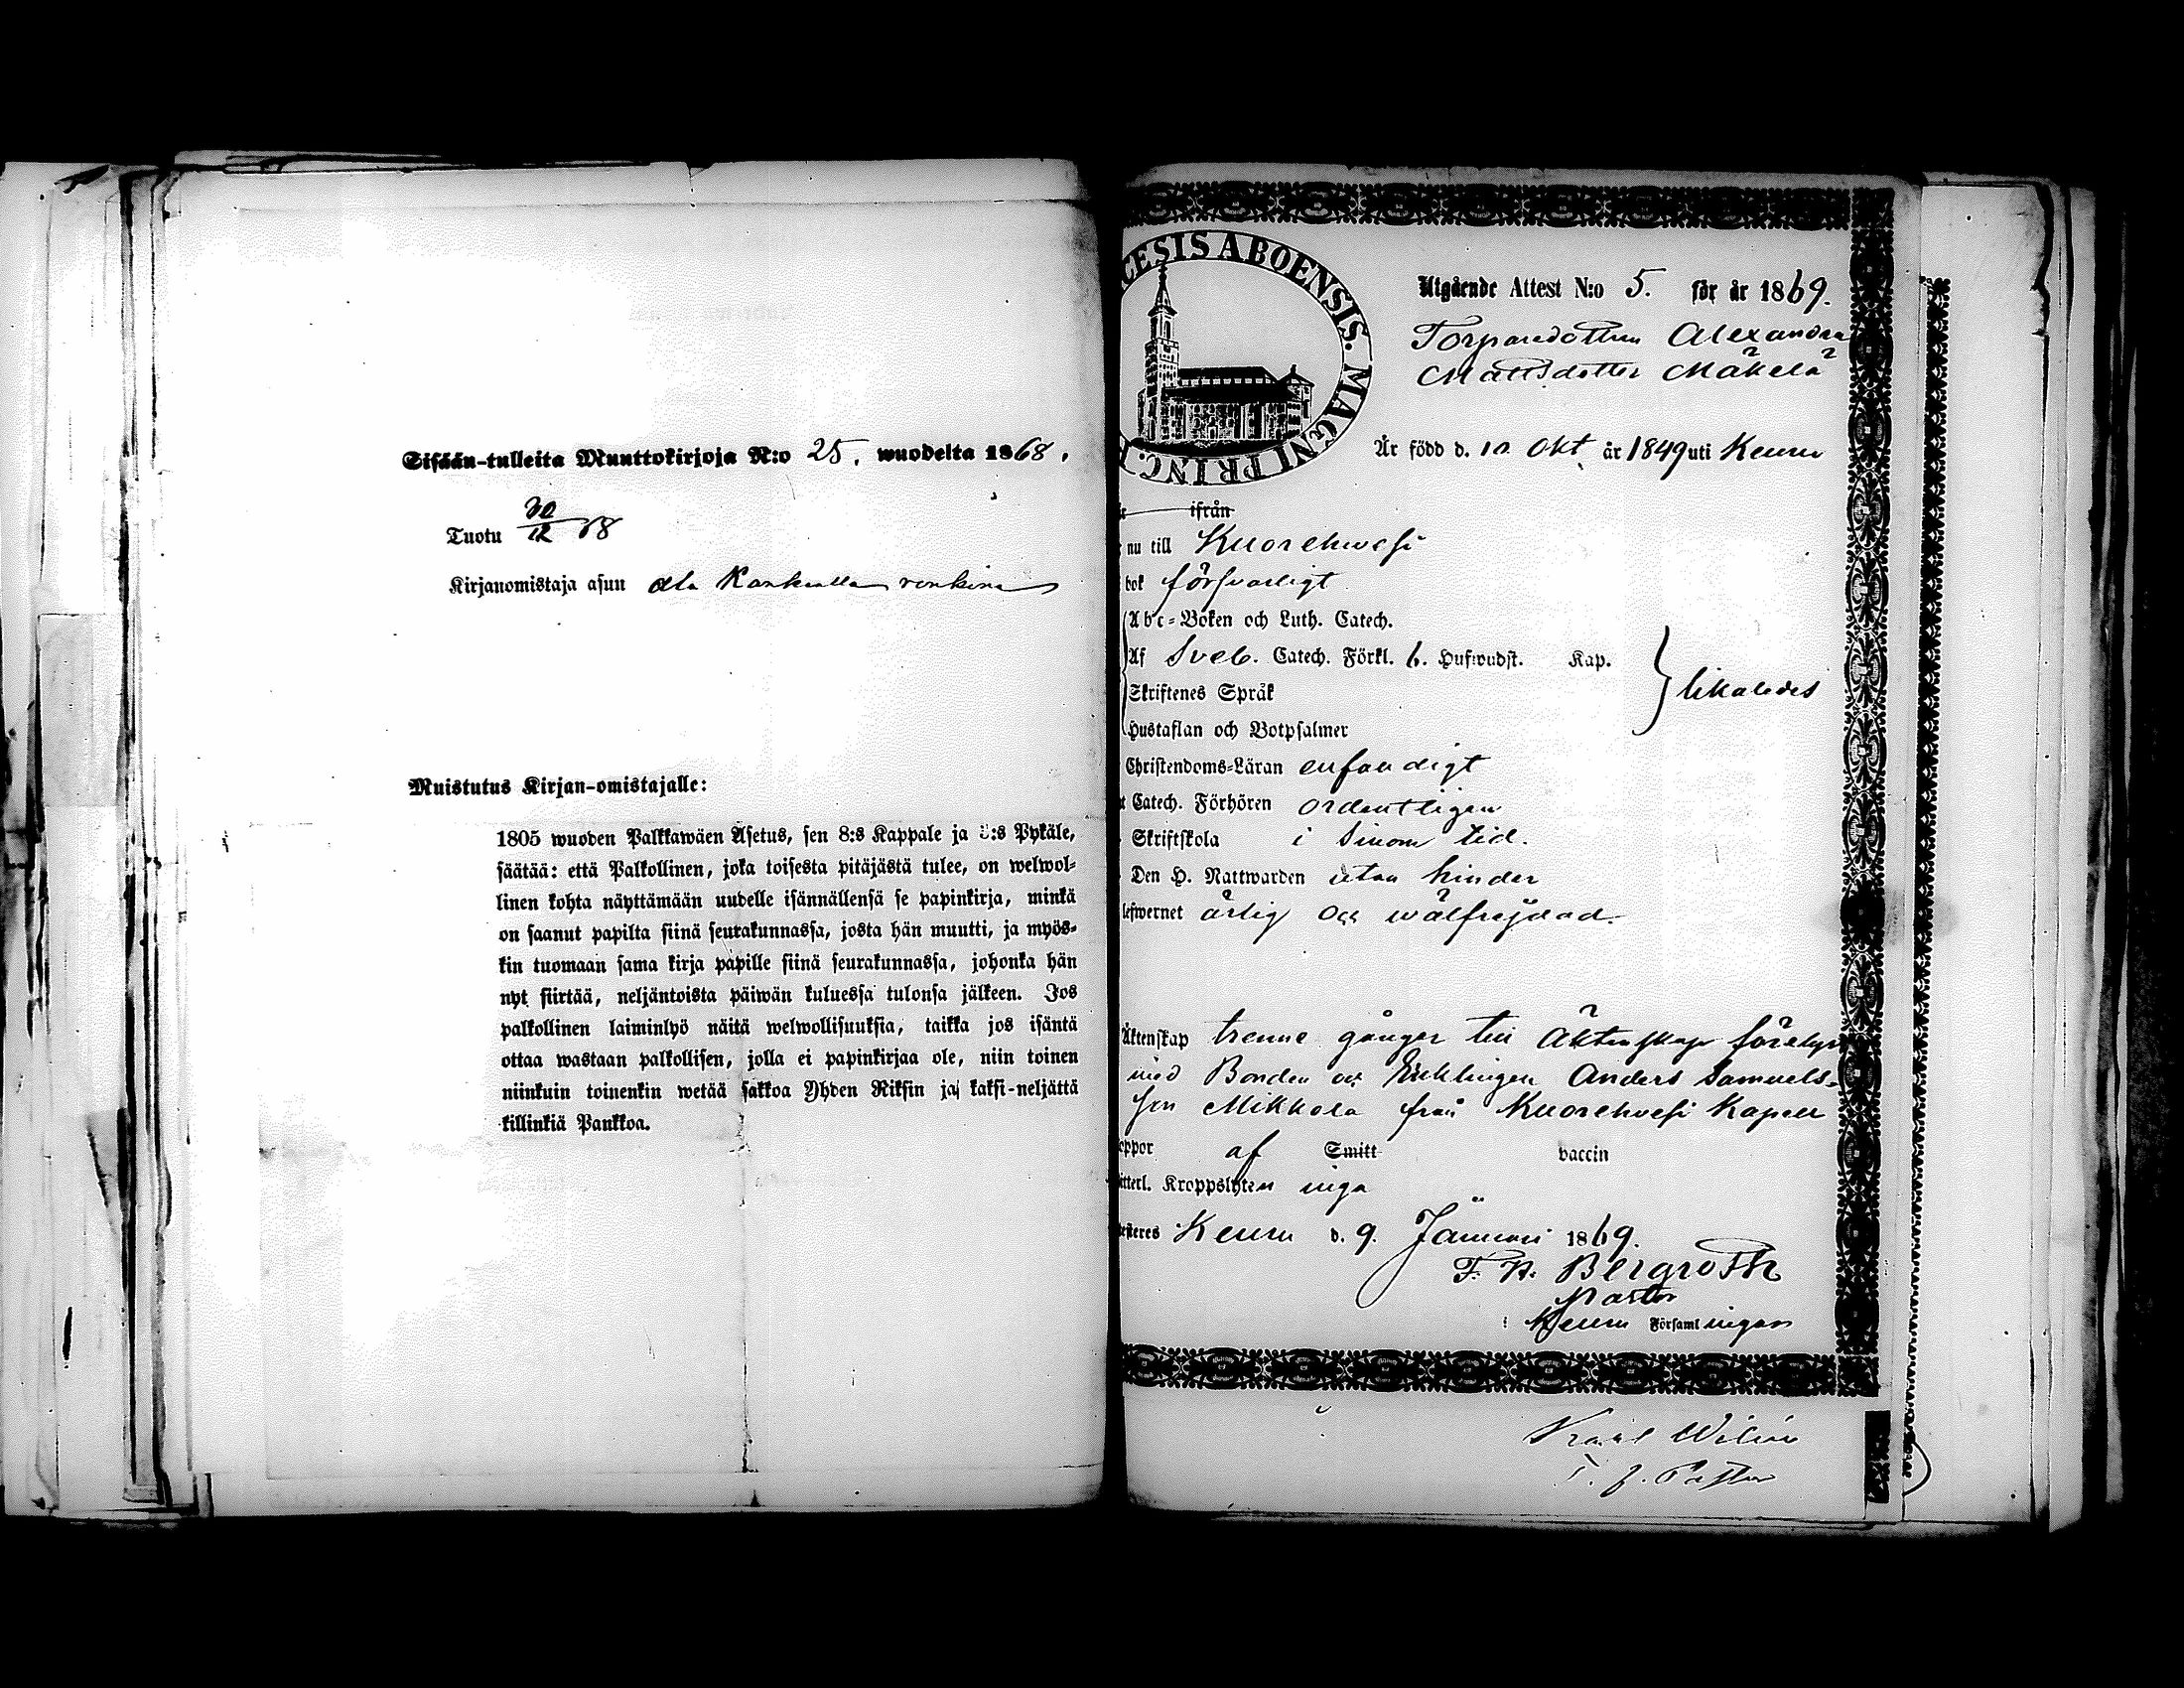 Sisään-tulleita Muuttokirjoja N:o 25. wuodelta 1868.
Tuotu 30/12 68
Kirjanomistaja asuu Ala Kankaalla renkinä
Muistutus Kirjan-omistajalle:
1805 wuoden Palkkawäen Asetus, sen 8:s Kappale ja :s Pykäle,
säätää: että Palkollinen, joka toisesta pitäjästä tulee, on welwol-
linen kohta näyttämään uudelle isännällensä se papinkirja, minkä
on saanut papilta siinä seurakunnassa, josta hän muutti, ja myös-
kin tuomaan sama kirja papille siinä seurakunnassa, johonka hän
nyt siirtää, neljäntoista päiwän kuluessa tulonsa jälkeen. Jos
palkollinen laiminlyö näitä welwollisuuksia, taikka jos isäntä
ottaa wastaan palkollisen, jolla ei papinkirjaa ole, niin toinen
niinkuin toinenkin wetää sakkoa Yhden Riksin ja kaksi-neljättä
killinkiä Pankkoa.
CESIS ABOENSIS. MAGNI PRINC.
Utgående Attest N:o 5. för år 1869.
Torparedottren Alexandra
Mattsdotter Mäkelä
Är född d. 10 Okt. år 1849 uti Keuru
ifrån
nu till Kuorehwesi
bok försvarligt
Abc-Boken och Luth. Catech.
Af Sveb. Catech. Förkl. 6. Hufwudst. Kap.
Skriftenes Språk
Hustaflan och Botpsalmer
likaledes
Christendoms-Läran enfaldigt
Catech. Förhören ordentligen
Skriftskola i sinom tid.
Den H. Nattwarden utan hinder
lefwernet ärlig och wälfrejdad.
Äktenskap trenne gånger till Äktenskap förelyst
med Bonden och Enklingen Anders Samuels-
son Mikkola från Kuorehvesi Kapell
oppor af Smitt vaccin
itterl. Kroppslyten inga
esteres Keuru d. 9. Januari 1869.
F. H. Bergroth
Pastor
i Keuru Församlingar
Karl Wilén
T. f. Pastor